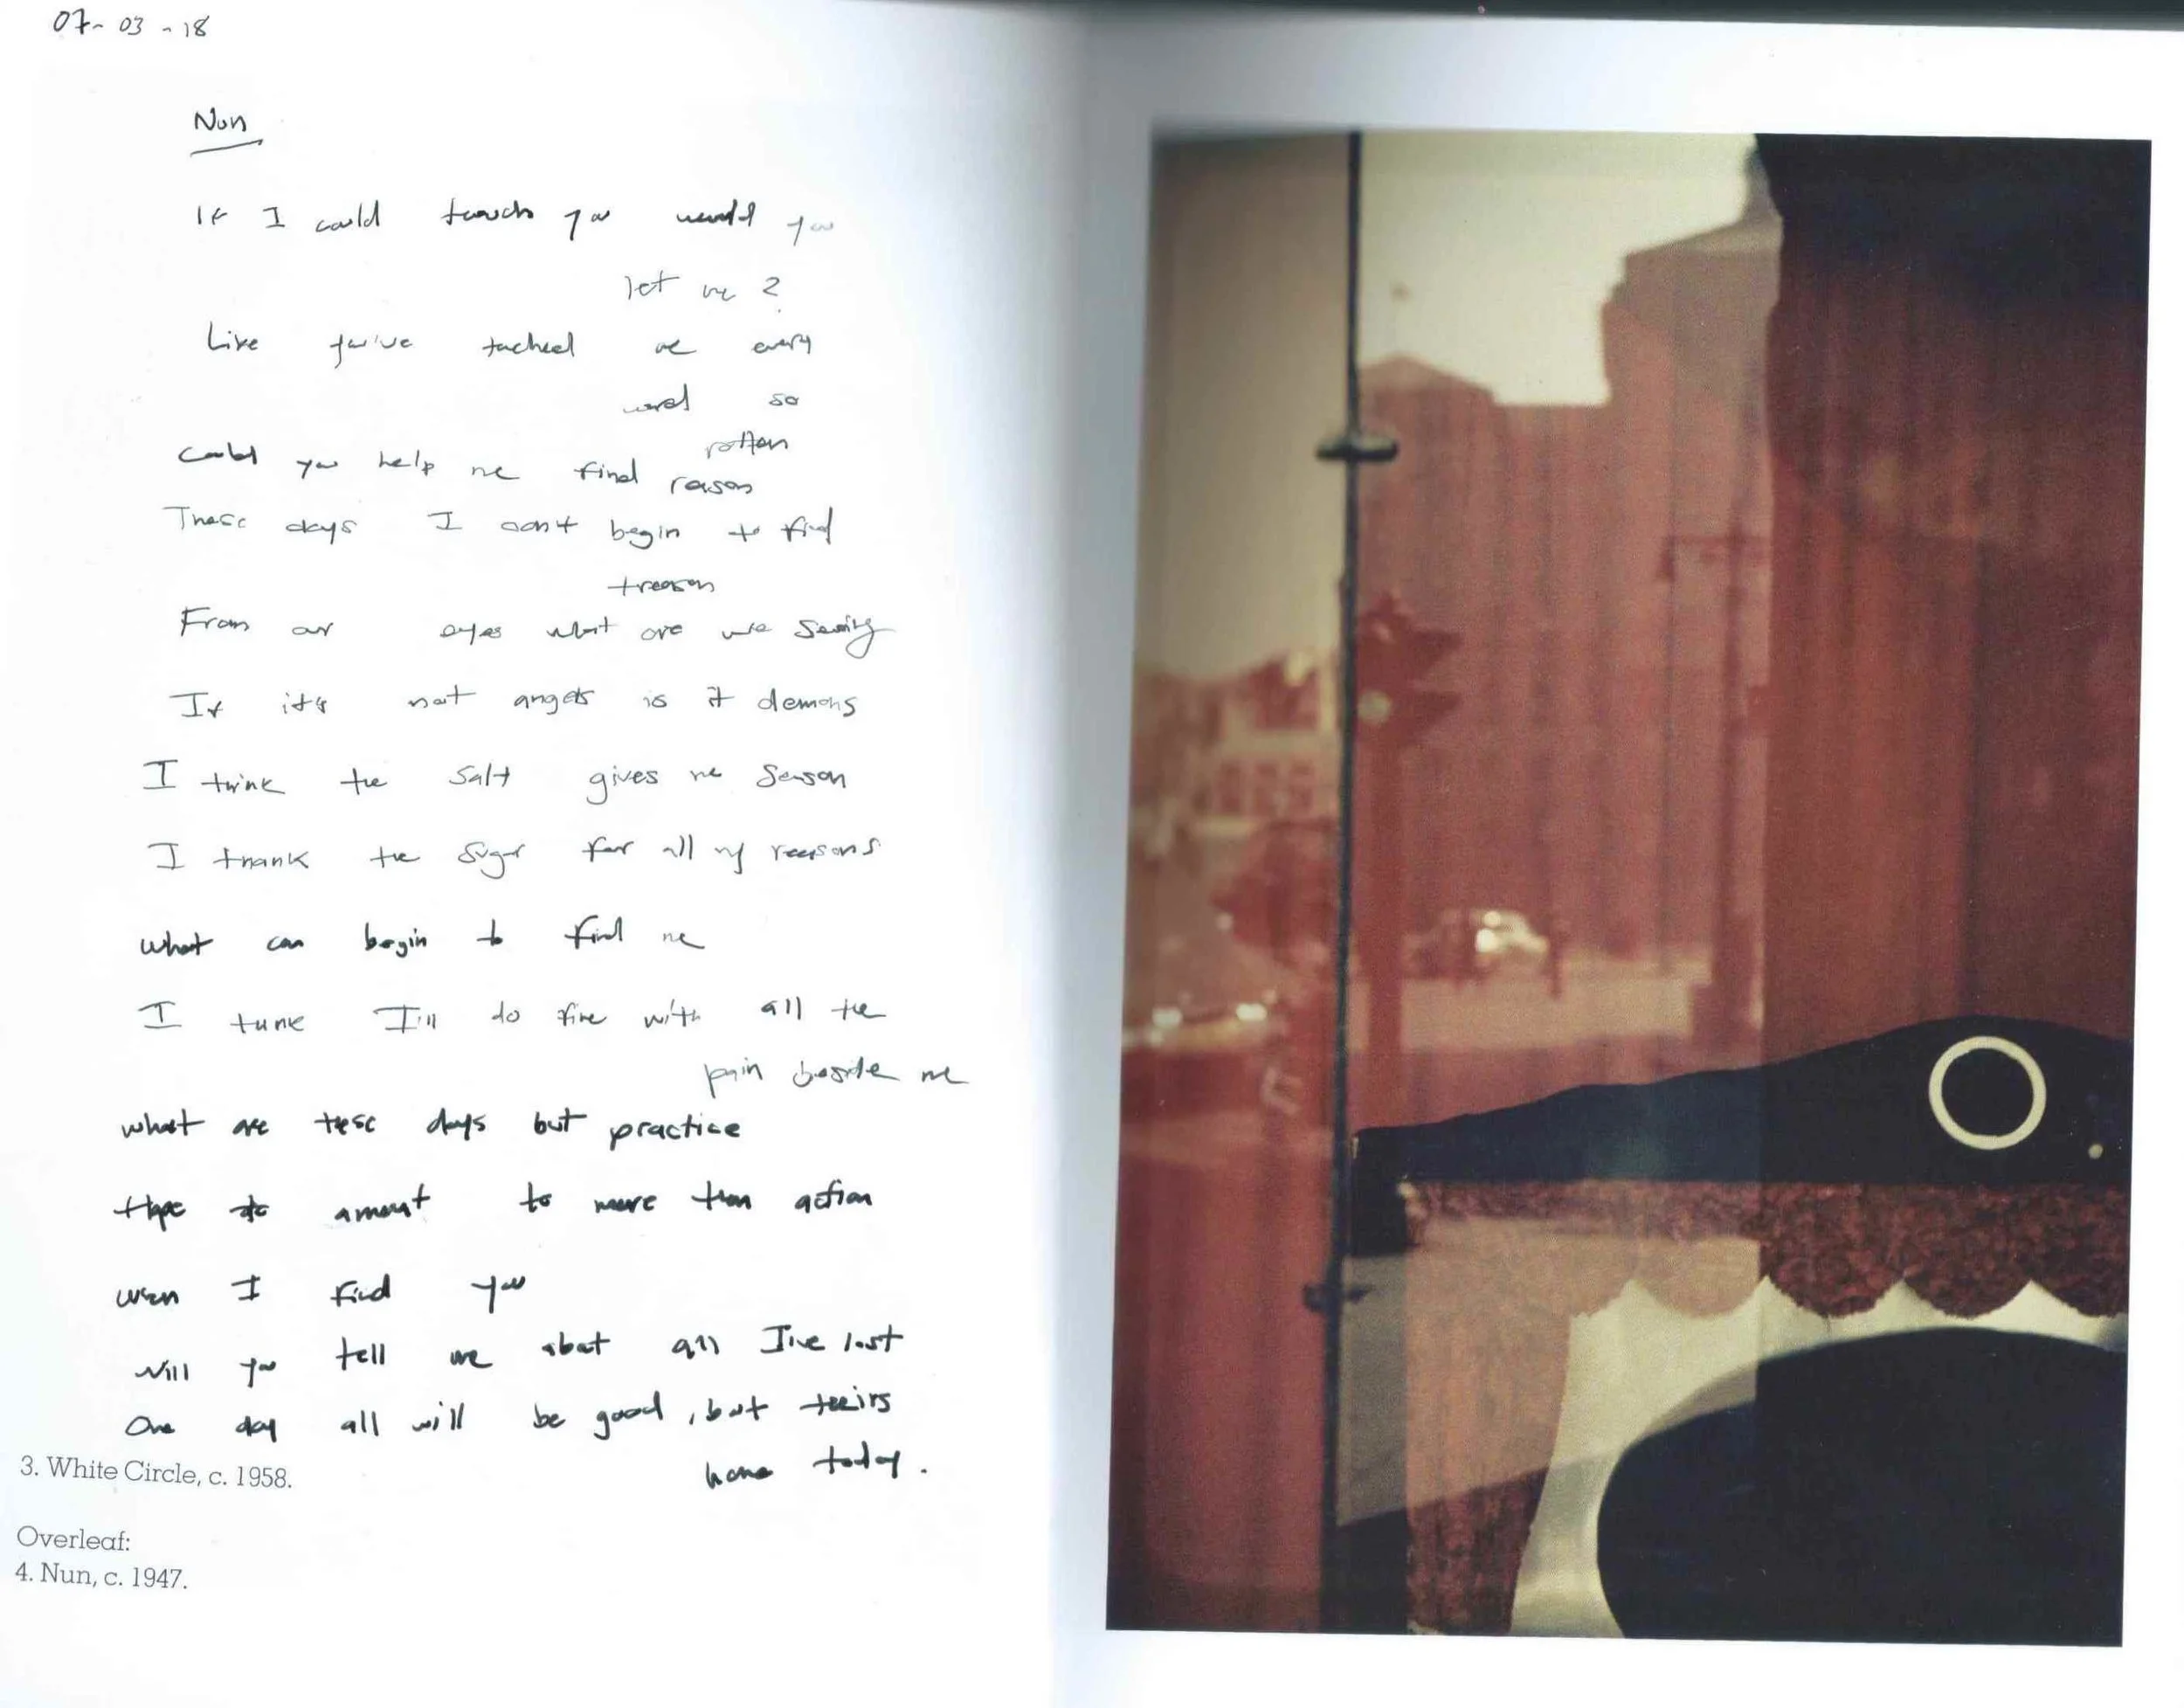 07-03-18
Nun
If I could touch you would you
let me ?
Like you've touched me every
word so
rotten
Could you help me find reason
These days I can't begin to find
treason
From our eyes what are we seeing
If it's not angels is it demons
I think the salt gives me season
I thank the sugar for all my reasons
What can begin to find me
I think I'll do fine with all the
pain beside me
What are these days but practice
Hope to amount to more than action
When I find you
Will you tell me about all I've lost
One day all will be good, but
home today.
3. White Circle, c. 1958.
Overleaf:
4. Nun, c. 1947.